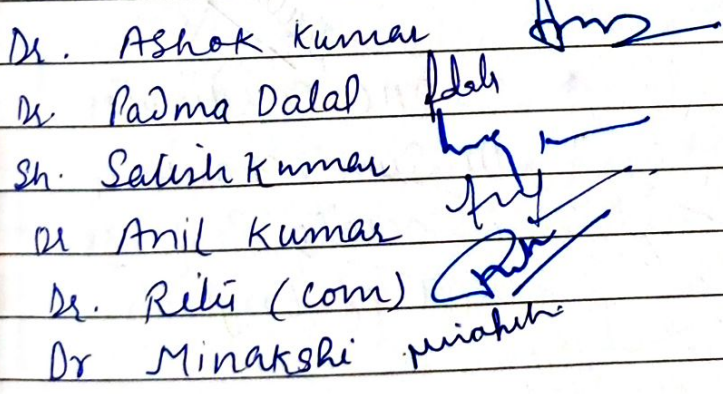 Dr. Ashok Kumar
Dr. Padma Dalal
Sh. Satish Kumar
Dr Anil Kumar
Dr. Ritu (com)
Dr Minakshi